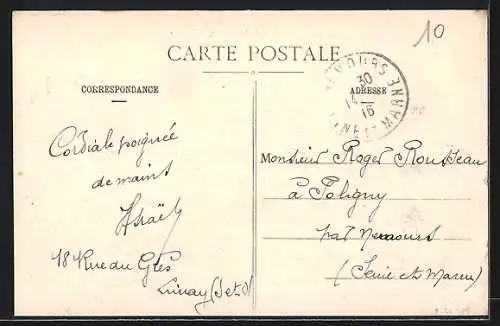 10
CARTE POSTALE
CORRESPONDANCE
ADRESSE
NEMOURS
30
14
16
SEINE ET MARNE
Cordiale poignée
de mains
18 Rue du Grès
(S et O)
Monsieur Roger Rousseau
à Poligny
par Nemours
(Seine et Marne)